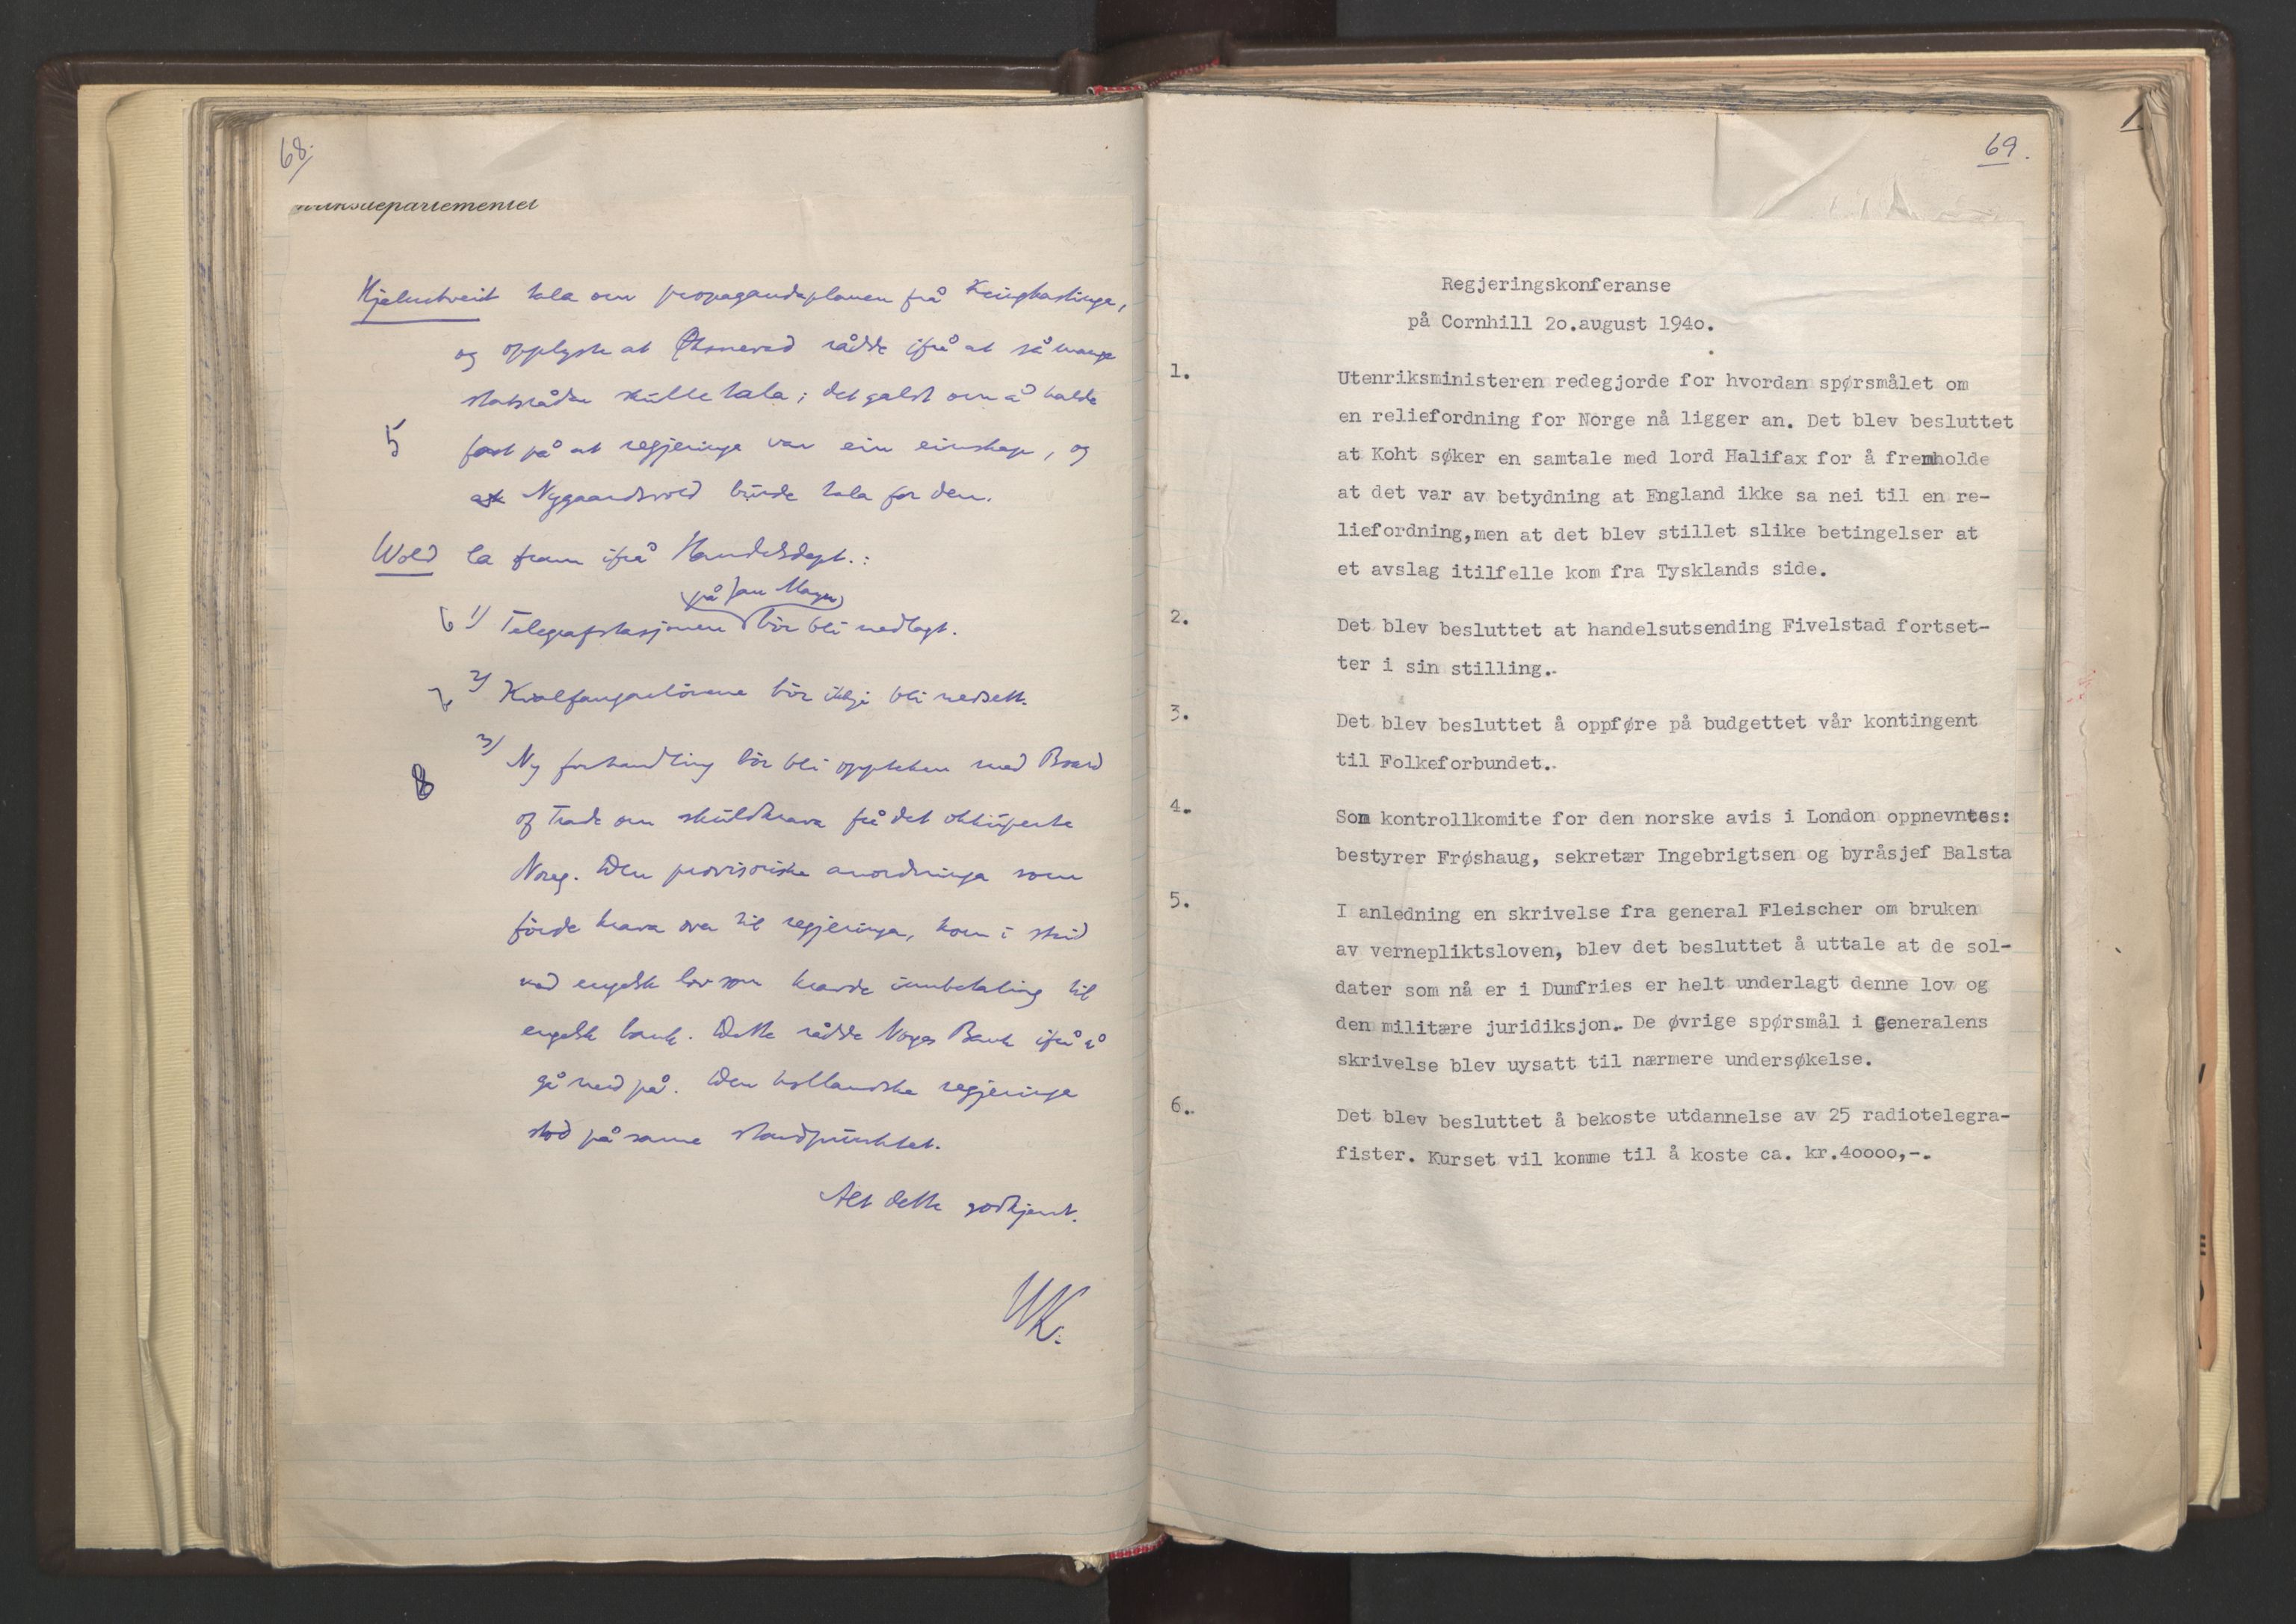 68.
Hjelmtveit tala om propagandaplanen frå Kringkastinga,
og opplyste at Øksnevad rådde ifrå at så mange
statsrådar skulle tala; det galdt om å halde
5 fast på at regjeringa var ein einskap, og
at Nygaardsvold burde tala for den.
Wold la fram ifrå Handelsdept.:
(på Jan Mayen)
6 1) Telegrafstasjonen bör bli nedlagt.
7 2) Kvalfangarlönene bör ikkje bli nedsett.
3) Ny forhandling bör bli oppteken med Board
8 of Trade om skuldkrava frå det okkuperte
Noreg. Den provisoriske anordninga som
förde krava over til regjeringa, kom i strid
med engelsk lov som kravde innbetaling til
engelsk bank. Dette rådde Norges Bank ifrå å
gå med på. Den hollandske regjeringa
stod på same standpunktet.
Alt dette godkjent.
HK.
69.
Regjeringskonferanse
på Cornhill 2o.august 194o.
1. Utenriksministeren redegjorde for hvordan spørsmålet om
en reliefordning for Norge nå ligger an. Det blev besluttet
at Koht søker en samtale med lord Halifax for å fremholde
at det var av betydning at England ikke sa nei til en re-
liefordning,men at det blev stillet slike betingelser at
et avslag itilfelle kom fra Tysklands side.
2. Det blev besluttet at handelsutsending Fivelstad fortset-
ter i sin stilling.
3. Det blev besluttet å oppføre på budgettet vår kontingent
til Folkeforbundet.
4. Som kontrollkomite for den norske avis i London oppnevntes:
bestyrer Frøshaug, sekretær Ingebrigtsen og byråsjef Balsta
5. I anledning en skrivelse fra general Fleischer om bruken
av vernepliktsloven, blev det besluttet å uttale at de sol-
dater som nå er i Dumfries er helt underlagt denne lov og
den militære juridiksjon. De øvrige spørsmål i Generalens
skrivelse blev uysatt til nærmere undersøkelse.
6. Det blev besluttet å bekoste utdannelse av 25 radiotelegra-
fister. Kurset vil komme til å koste ca. kr.4oooo,-.